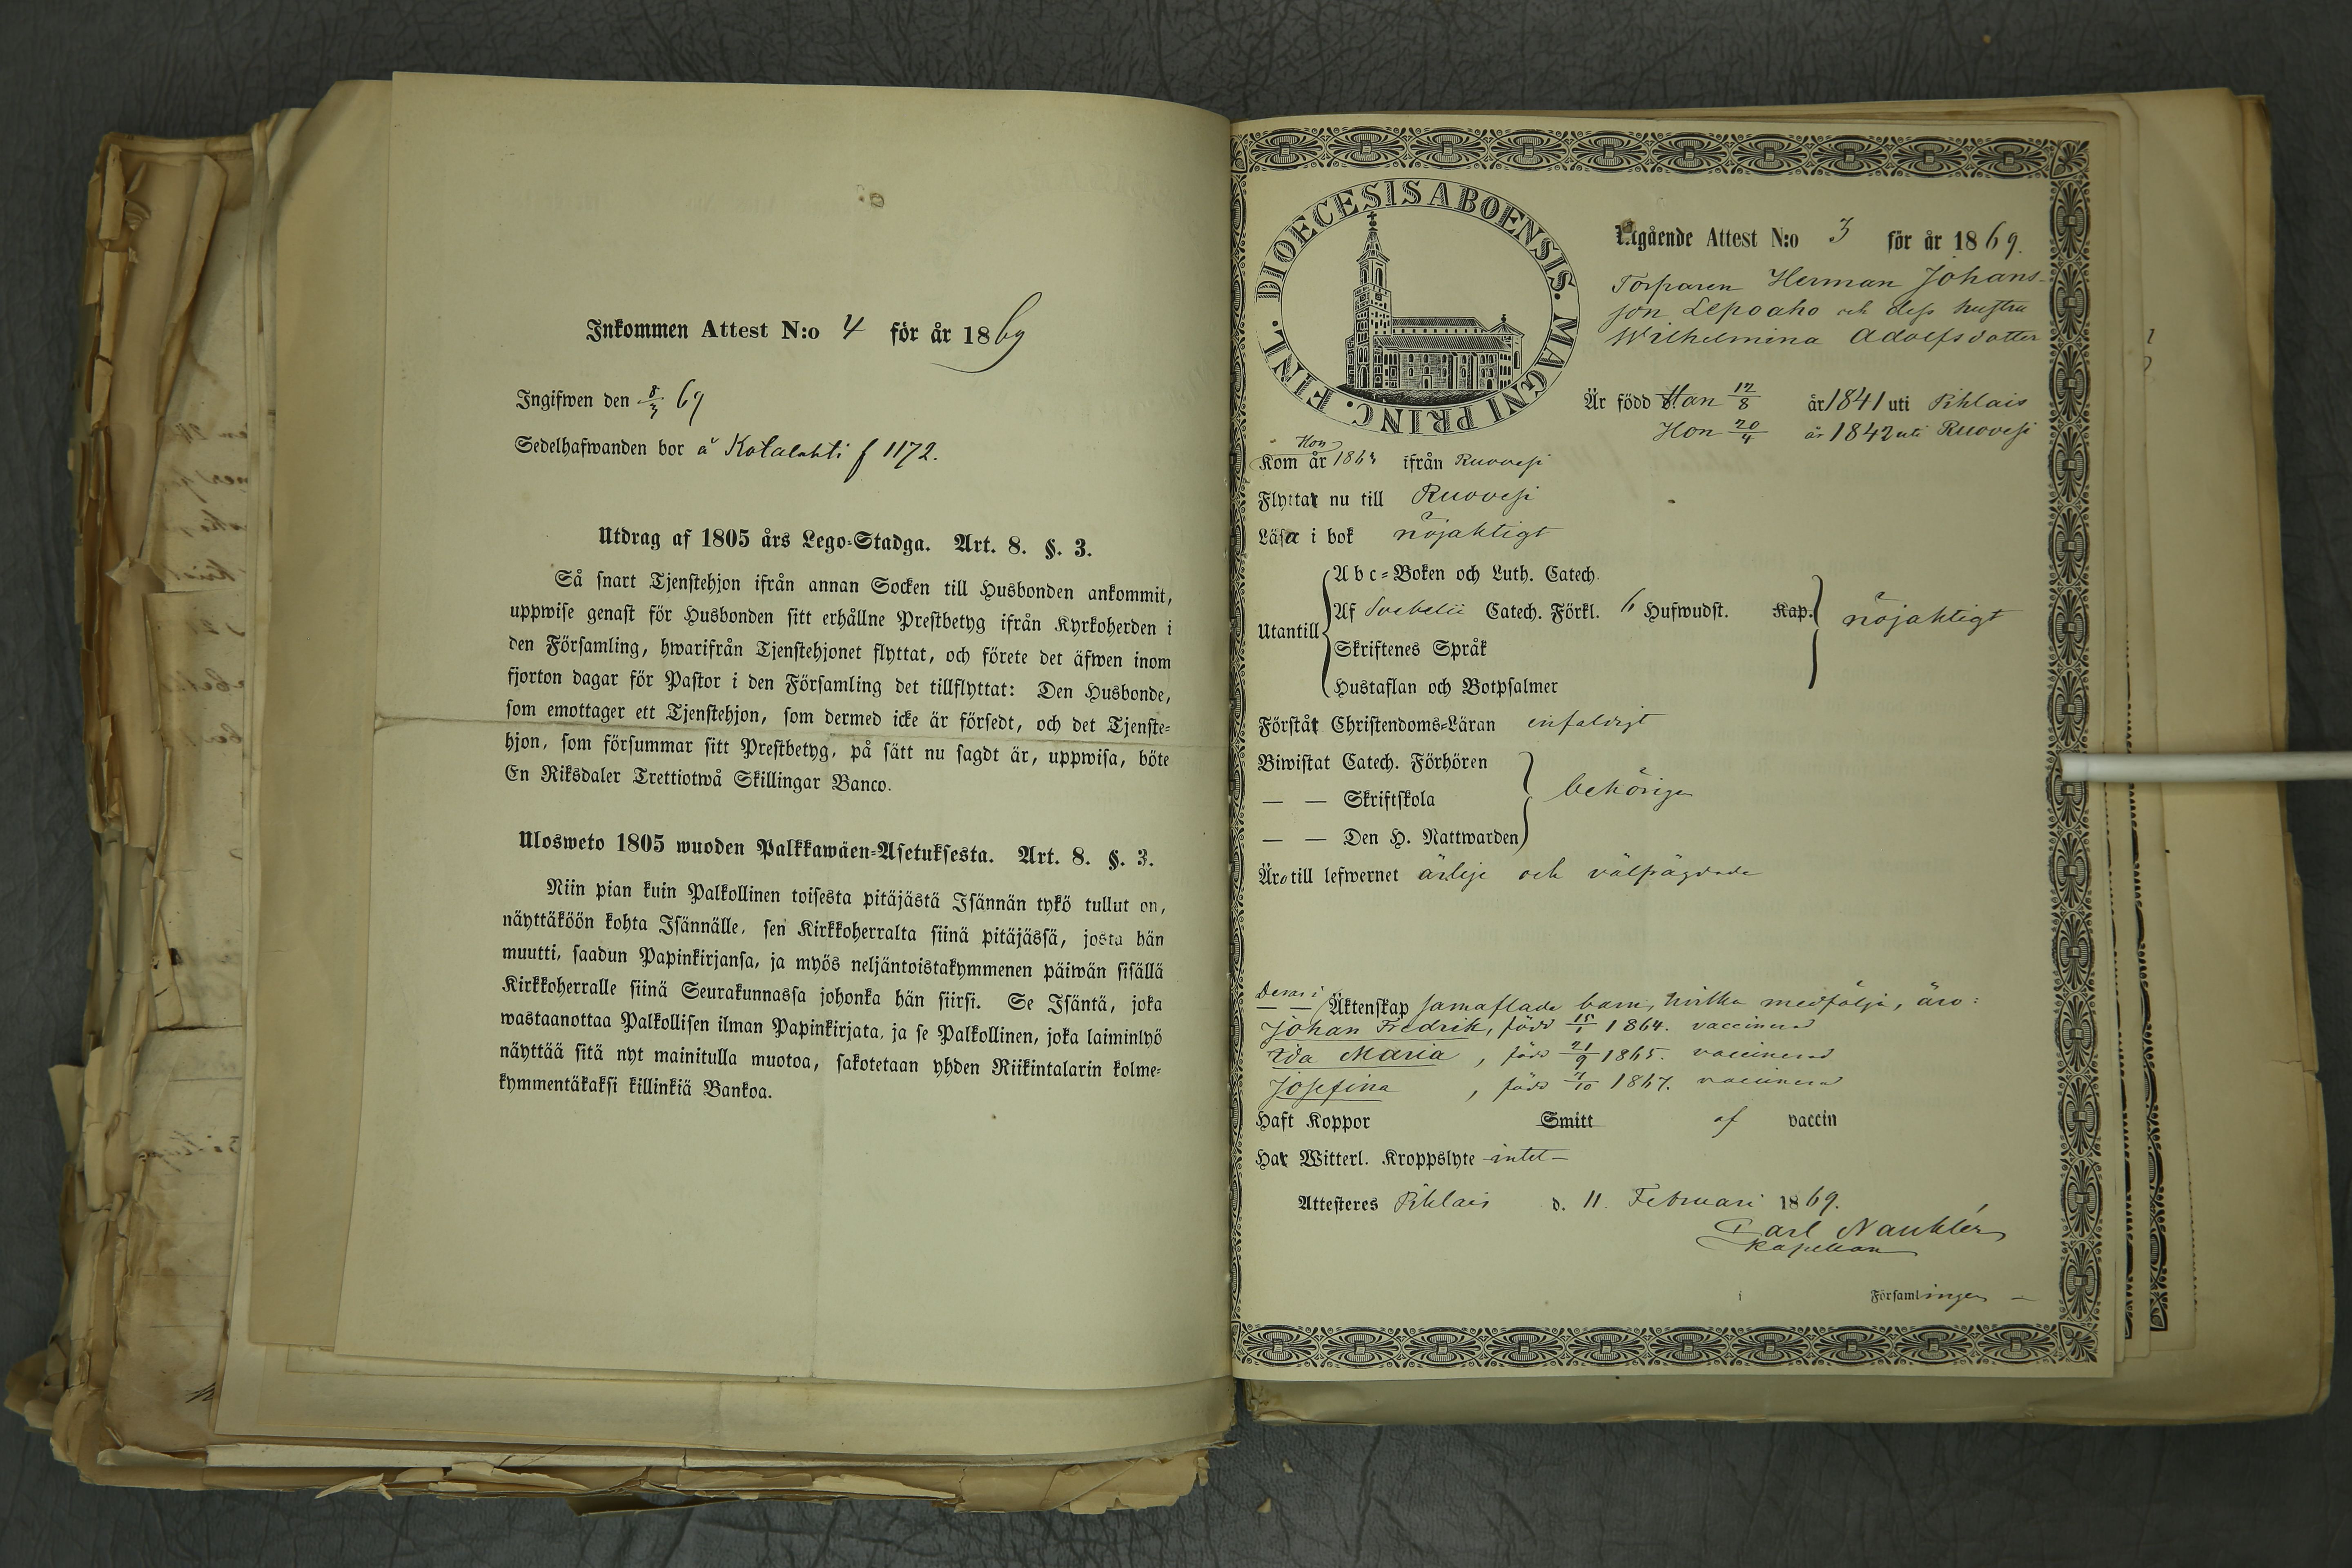 Inkommen Attest N:o 4 för år 1869
Ingifwen den 8/3 69
Sedelhafwanden bor å Kotalahti f 1172.
Utdrag af 1805 års Lego-Stadga. Art. 8. §. 3.
Så snart Tjenstehjon ifrån annan Socken till Husbonden ankommit,
uppwise genast för Husbonden sitt erhållne Prestbetyg ifrån Kyrkoherden i
den Församling, hwarifrån Tjenstehjonet flyttat, och förete det äfwen inom
fjorton dagar för Pastor i den Församling det tillflyttat: Den Husbonde,
som emottager ett Tjenstehjon, som dermed icke är försedt, och det Tjenste-
hjon, som försummar sitt Prestbetyg, på sätt nu sagdt är, uppwisa, böte
En Riksdaler Trettiotwå Skillingar Banco.
Ulosweto 1805 wuoden Palkkawäen-Asetuksesta. Art. 8. §. 3.
Niin pian kuin Palkollinen toisesta pitäjästä Isännän tykö tullut on,
näyttäköön kohta Isännälle, sen Kirkkoherralta siinä pitäjässä, josta hän
muutti, saadun Papinkirjansa, ja myös neljäntoistakymmenen päiwän sisällä
Kirkkoherralle siinä Seurakunnassa johonka hän siirsi. Se Isäntä, joka
wastaanottaa Palkollisen ilman Papinkirjata, ja se Palkollinen, joka laiminlyö
näyttää sitä nyt mainitulla muotoa, sakotetaan yhden Riikintalarin kolme-
kymmentäkaksi killinkiä Bankoa.
DIOECESIS ABOENSIS. MAGNI PRINC. FINL.
Utgående Attest N:o 3 för år 1869.
Torparen Herman Johans-
son Lepoaho och dess hustru
Wilhelmina Adolfsdotter
Är född Han 17/8 år 1841 uti Pihlais
Hon 20/4 år 1842 uti Ruovesi
Hon
Kom år 1863 ifrån Ruovesi
Flyttat nu till Ruovesi
Läsa i bok nöjaktigt
Abc-Boken och Luth. Catech.
Utantill Af Svebelii Catech. Förkl. 6 Hufwudst. Kap. nöjaktigt
Skriftenes Språk
Hustaflan och Botpsalmer
Förstår Christendoms-Läran enfaldigt
Biwistat Catech. Förhören
— — Skriftskola behörigen
— — Den H. Nattwarden
Äro till lefwernet ärlige och välfrägdade
Deras i
— — Äktenskap samaflade barn, hvilka medfölja, äro:
Johan Fredrik, född 15/1 1864. vaccinerad
Ida Maria, född 21/9 1865. vaccinerad
Josefina, född 7/10 1867. vaccinerad
Haft Koppor Smitt af vaccin
Har Witterl. Kroppslyte -intet-
Attesteres Pihlais d. 11 Februari 1869.
Carl Nauklér
Kapellan
i Församlingen —